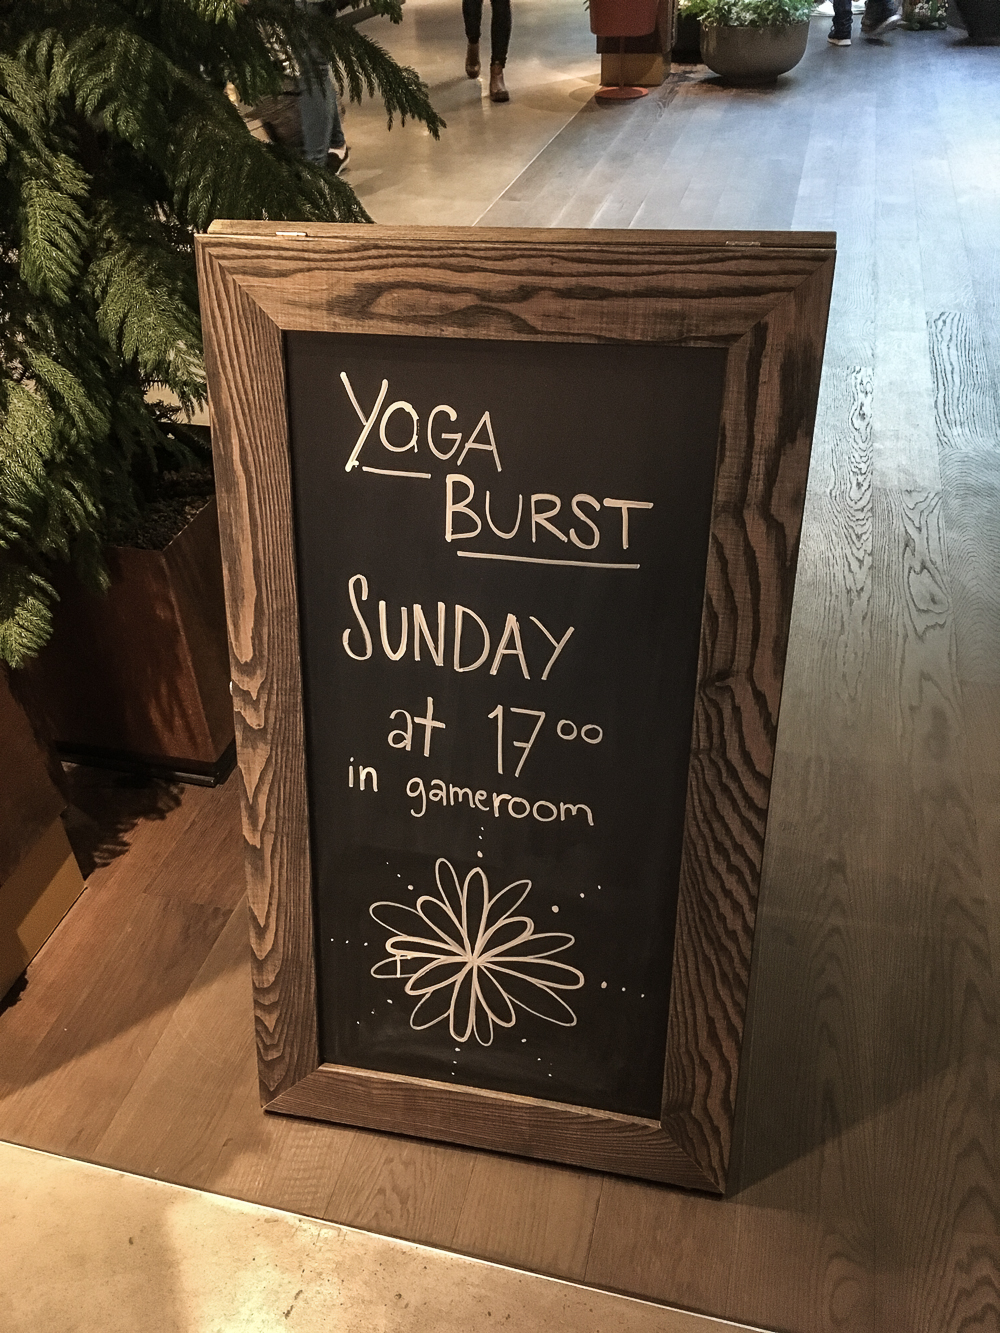 YOGA
BURST
SUNDAY
at 17⁰⁰
in gameroom